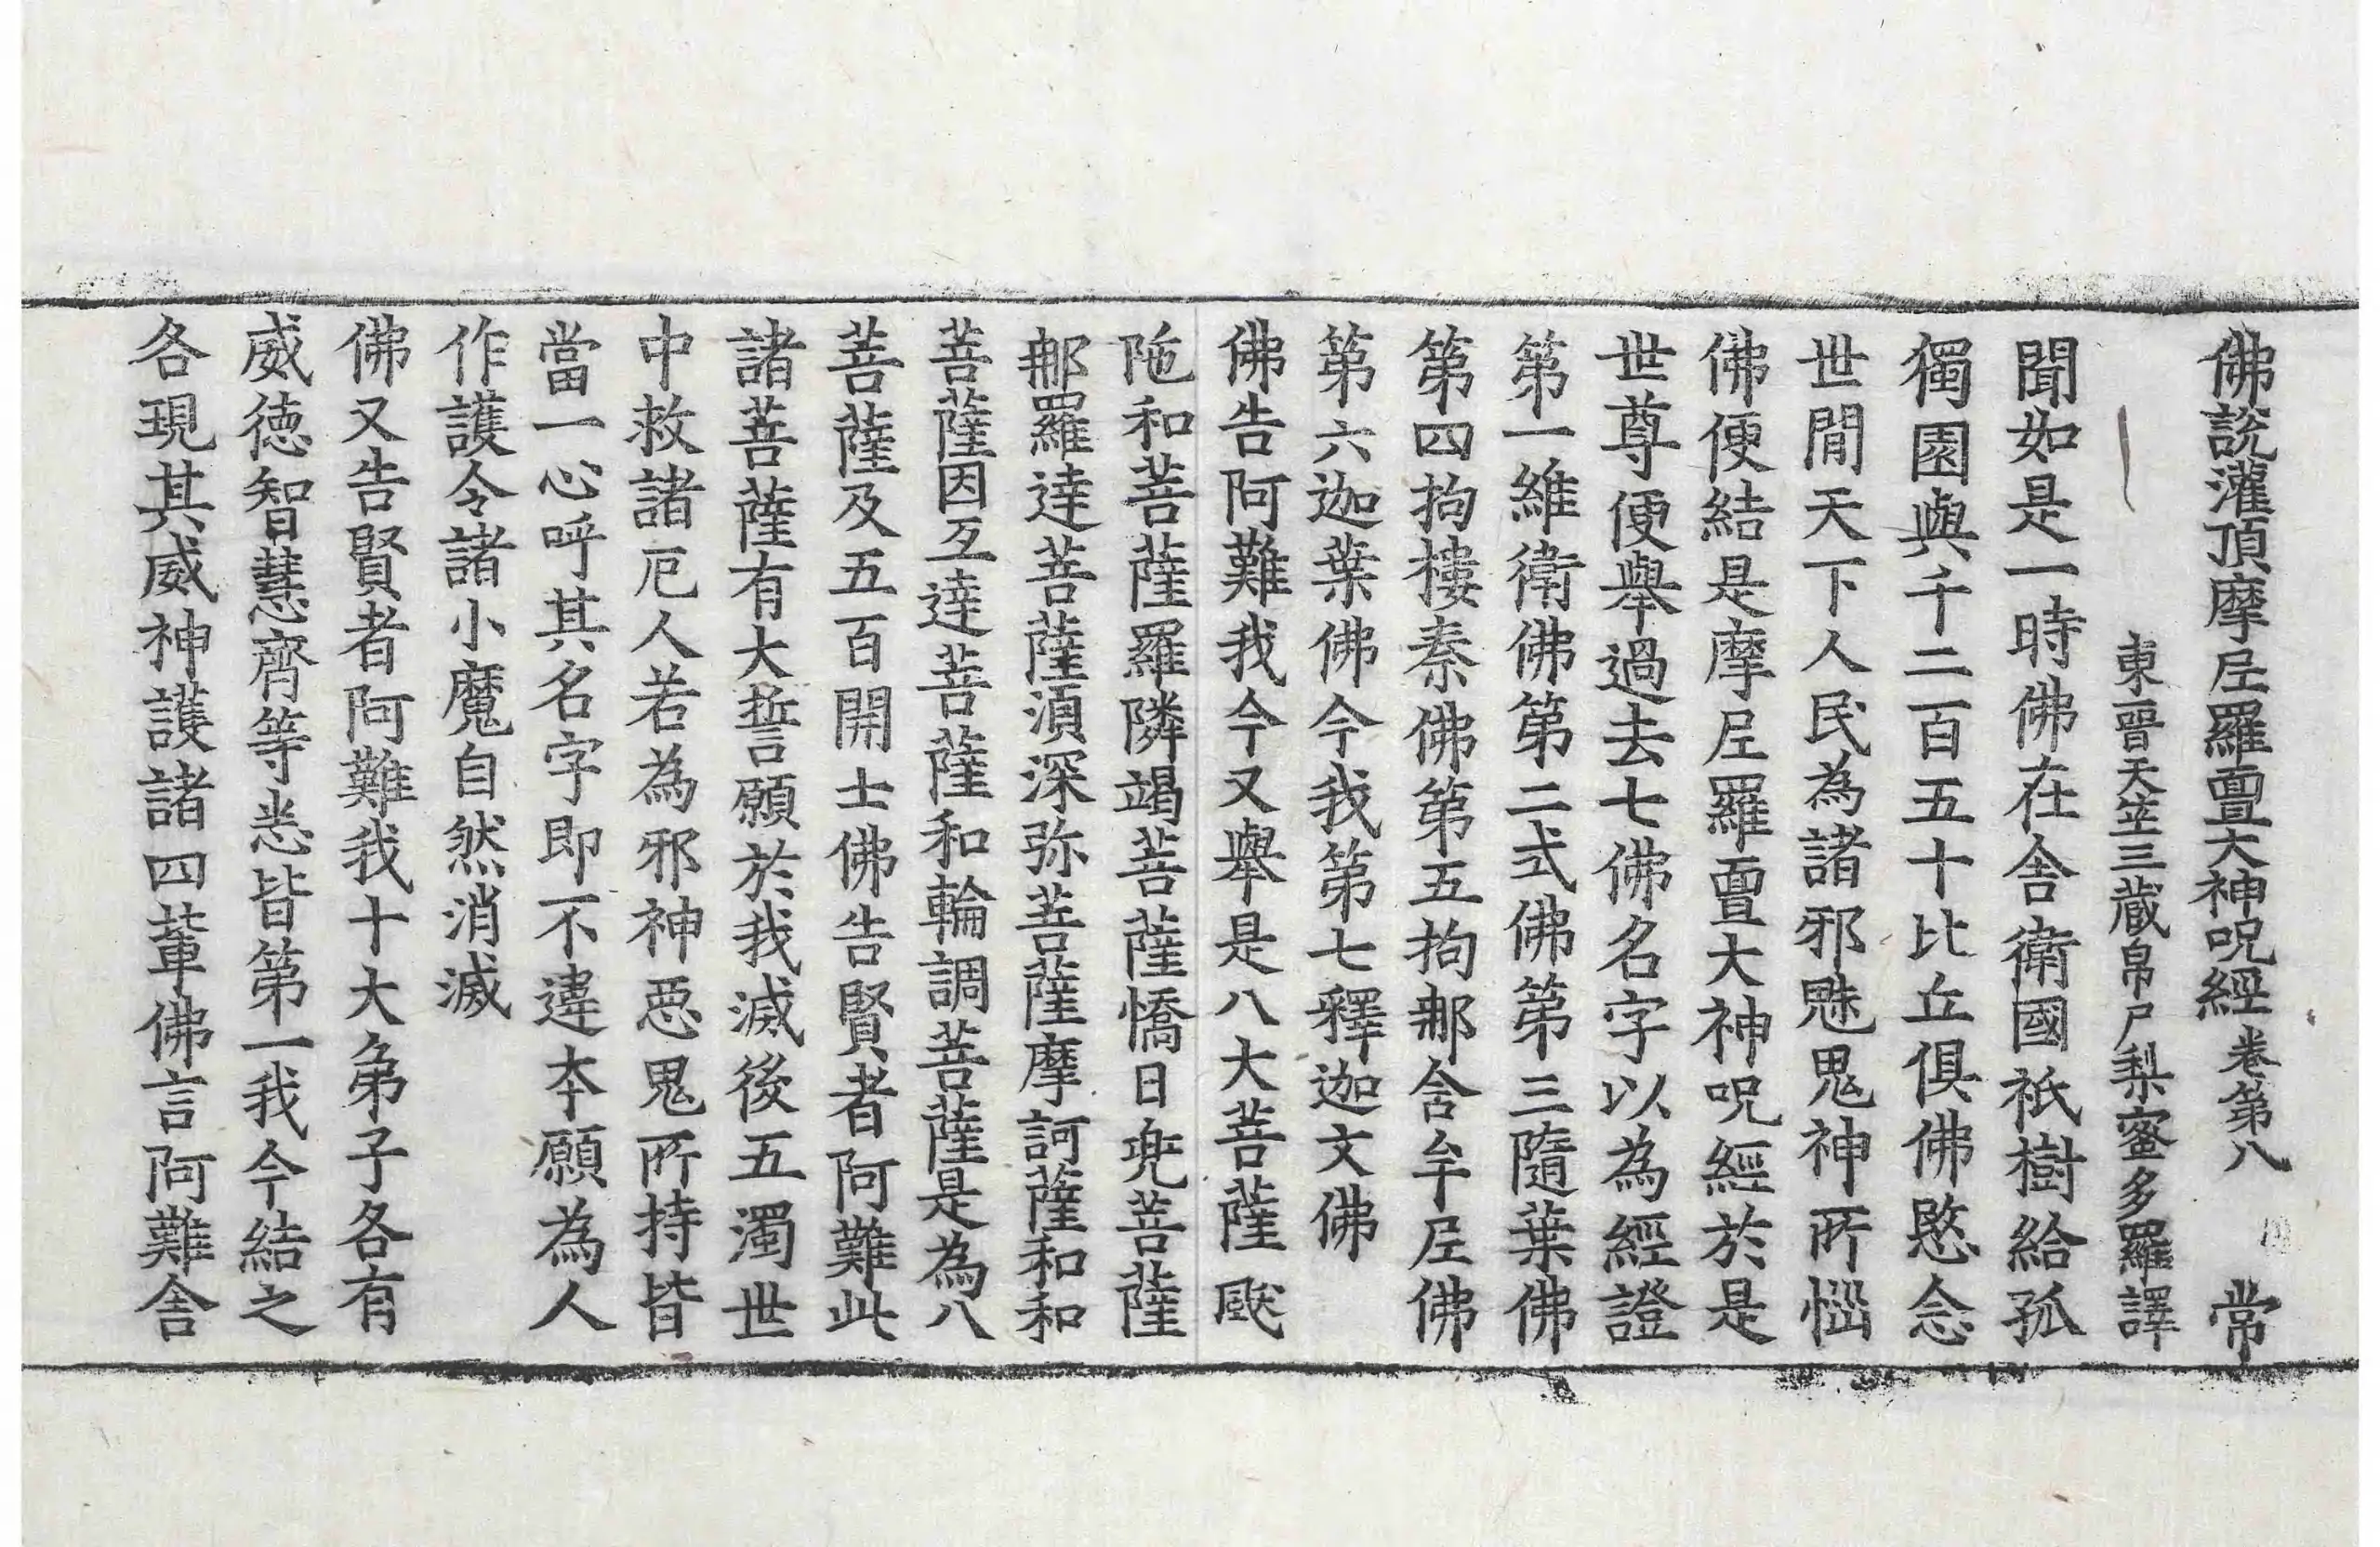 佛說灌頂摩尼羅亶大神呪經卷第八 常
東晉天竺三藏帛尸梨蜜多羅譯
聞如是一時佛在舍衛國祇樹給孤
獨園與千二百五十比丘俱佛愍念
世間天下人民為諸邪魅鬼神所惱
佛便結是摩尼羅亶大神呪經於是
世尊便舉過去七佛名字以為經證
第一維衛佛第二式佛第三隨葉佛
第四拘樓秦佛第五拘那舍牟尼佛
第六迦葉佛今我第七釋迦文佛
佛告阿難我今又舉是八大菩薩颰
陁和菩薩羅隣竭菩薩憍日兜菩薩
那羅達菩薩湏深弥菩薩摩訶薩和和
菩薩因互達菩薩和輪調菩薩是為八
菩薩及五百開士佛告賢者阿難此
諸菩薩有大誓願於我滅後五濁世
中救諸厄人若為邪神惡鬼所持皆
當一心呼其名字即不違本願為人
作護令諸小魔自然消滅
佛又告賢者阿難我十大弟子各有
威德智慧齊等悉皆第一我今結之
各現其威神護諸四輩佛言阿難舍